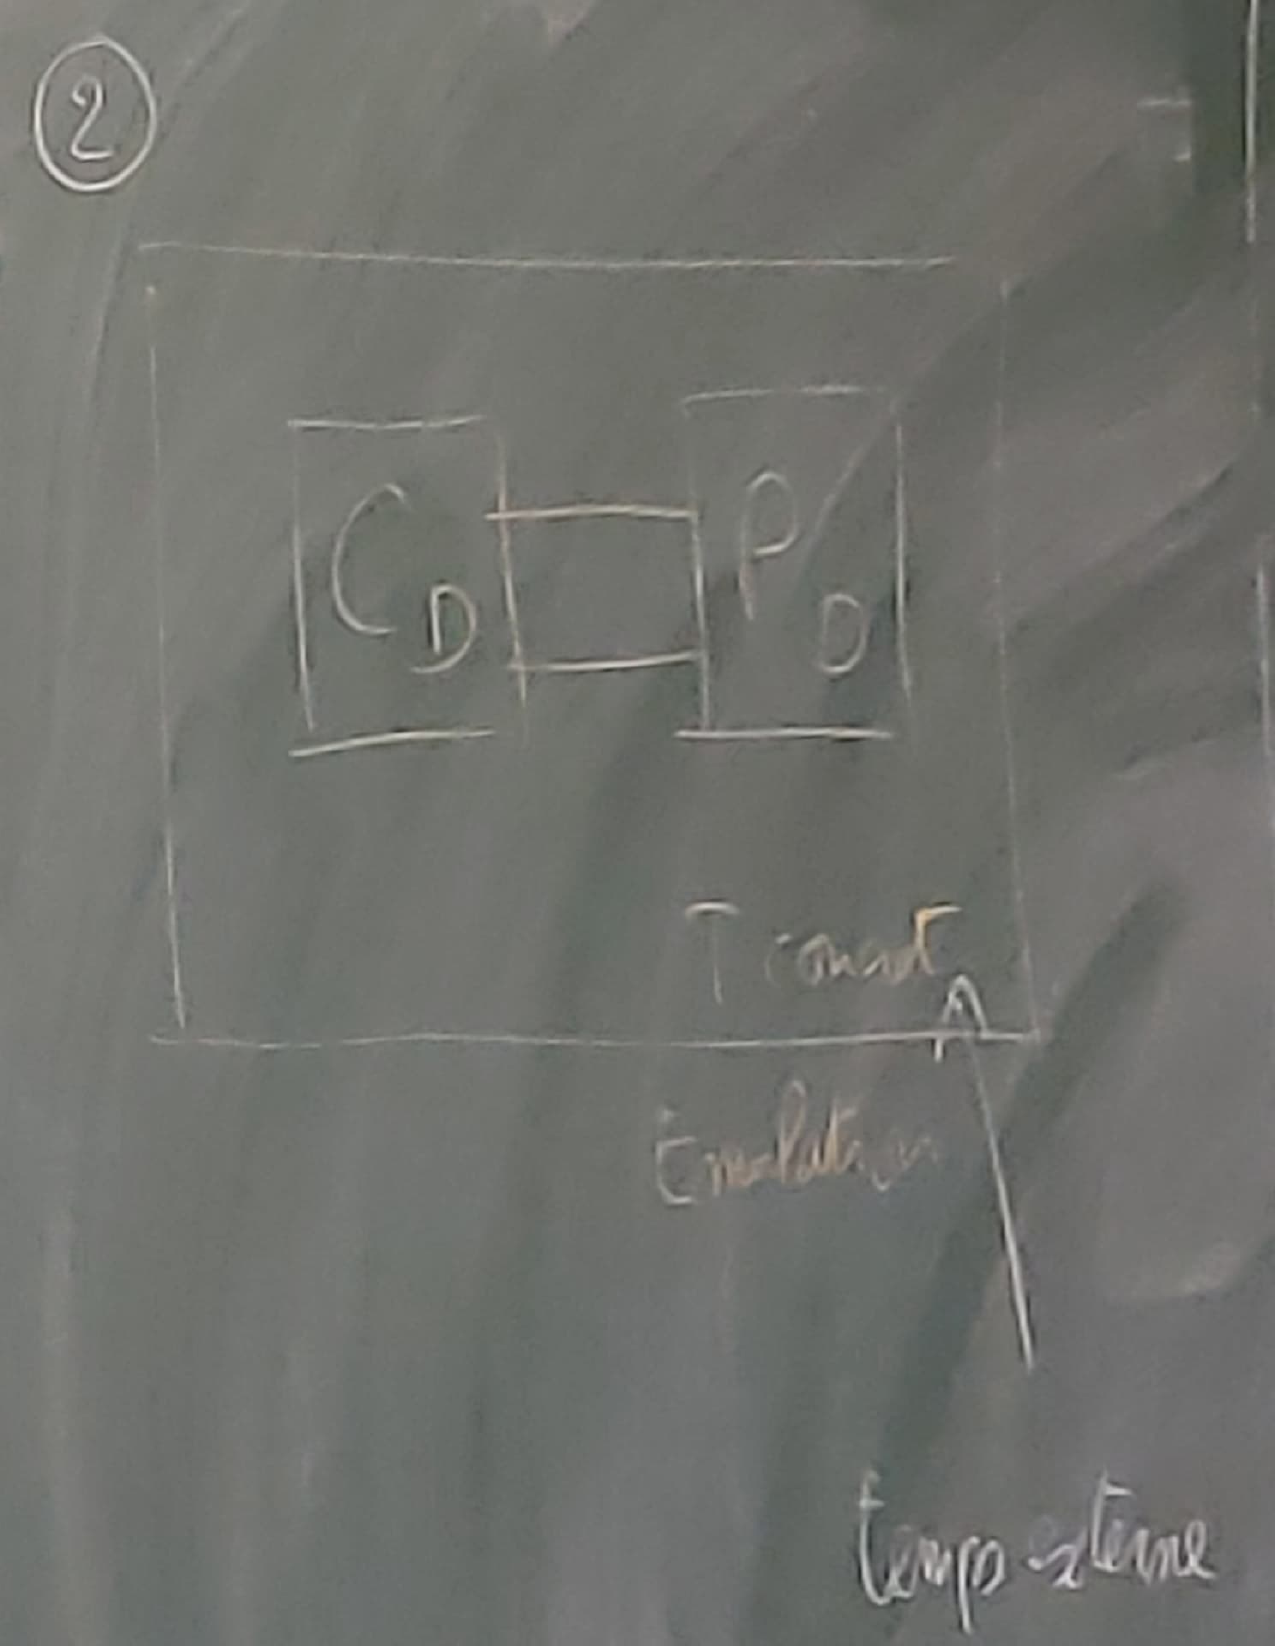 2
C D
P D
T const
Emulation
temps externe